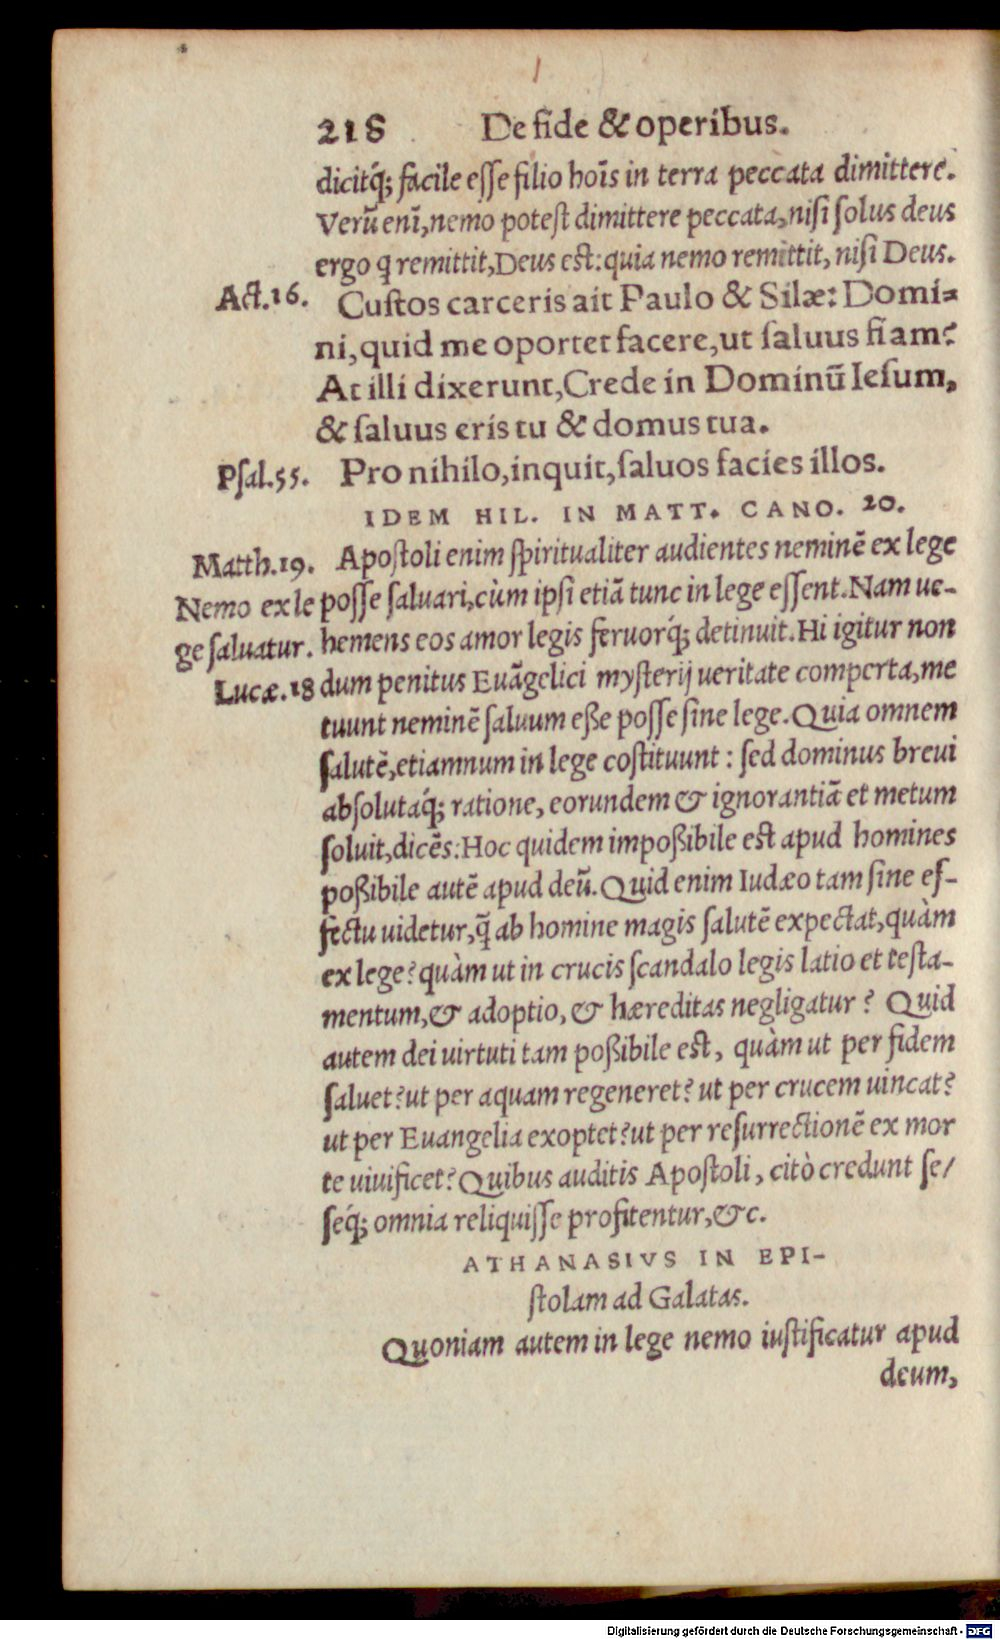 218 De fide & operibus.
dicitq́; facile esse filio hoīs in terra peccata dimittere.
Verū enī, nemo potest dimittere peccata, nisi solus deus
ergo q remittit, Deus est: quia nemo remittit, nisi Deus.
Act.16. Custos carceris ait Paulo & Silæ: Domi=
ni, quid me oportet facere, ut saluus fiam?
At illi dixerunt, Crede in Dominū Iesum,
& saluus eris tu & domus tua.
Psal.55. Pro nihilo, inquit, saluos facies illos.
IDEM HIL. IN MATT. CANO. 20.
Matth.19. Apostoli enim spiritualiter audientes neminē ex lege
Nemo ex le posse saluari, cùm ipsi etiā tunc in lege essent. Nam ue-
ge saluatur. hemens eos amor legis feruorq́; detinuit. Hi igitur non
Lucæ.18 dum penitus Euāgelici mysterij ueritate comperta, me
tuunt neminē saluum eße posse sine lege. Quia omnem
salutē, etiamnum in lege costituunt : sed dominus breui
absolutaq́; ratione, eorundem & ignorantiā et metum
soluit, dicēs: Hoc quidem impoßibile est apud homines
poßibile autē apud deū. Quid enim Iudæo tam sine ef-
fectu uidetur, q̄ ab homine magis salutē expectat, quàm
ex lege? quàm ut in crucis scandalo legis latio et testa-
mentum, & adoptio, & hæreditas negligatur? Quid
autem dei uirtuti tam poßibile est, quàm ut per fidem
saluet? ut per aquam regeneret? ut per crucem uincat?
ut per Euangelia exoptet? ut per resurrectionē ex mor
te uiuificet? Quibus auditis Apostoli, citò credunt se/
seq́; omnia reliquisse profitentur, &c.
ATHANASIVS IN EPI-
stolam ad Galatas.
Quoniam autem in lege nemo iustificatur apud
deum,
Digitalisierung gefördert durch die Deutsche Forschungsgemeinschaft - DFG